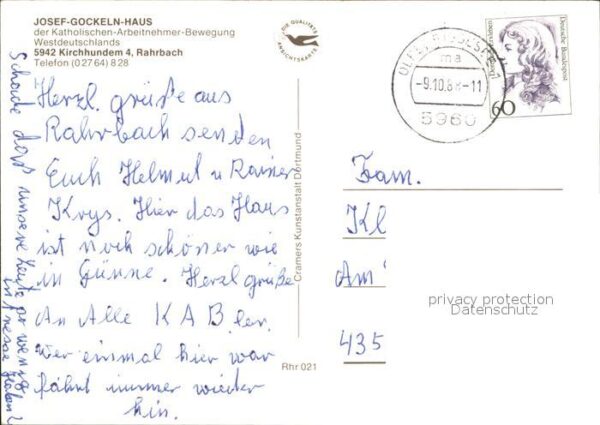 JOSEF-GOCKELN-HAUS
der Katholischen-Arbeitnehmer-Bewegung
Westdeutschlands
5942 Kirchhundem 4, Rahrbach
Telefon (02764) 828
DIE QUALITÄTS
ANSICHTSKARTE
Deutsche Bundespost
60
-9.10.88-11
ma
5960
Herzl. grüße aus
Rahrbach senden
Euch Helmut u Rainer
Krys. Hier das Haus
ist noch schöner wie
in Günne. Herzl grüße
An Alle KABler.
Wer einmal hier war
fährt immer wieder
hin.
Schade daß unsere Leute so wenig
Cramers Kunstanstalt Dortmund
Rhr 021
Fam.
Kl
Am
435
privacy protection
Datenschutz